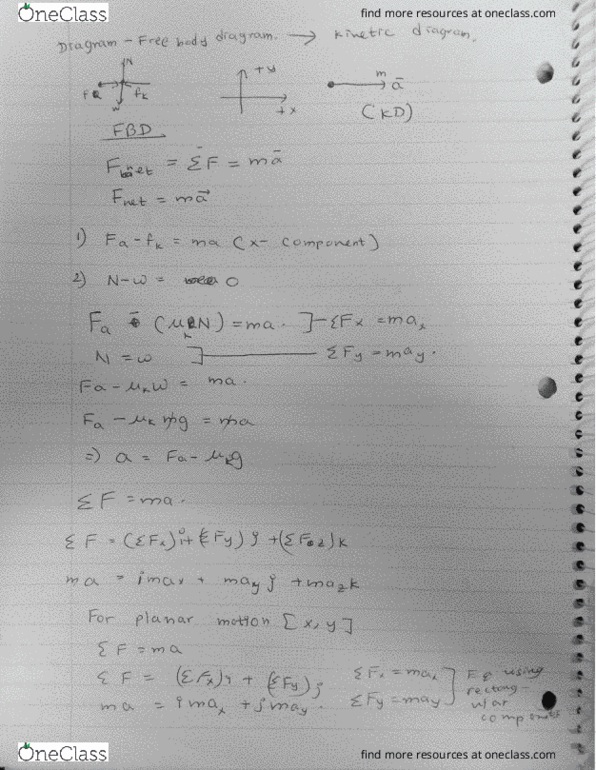 OneClass
find more resources at oneclass.com
Diagram - Free body diagram. → Kinetic diagram.
N
+y
m
a̅
fk
w
+x
(KD)
FBD
Fnet = ΣF̅ = ma̅
Fnet = ma⃗
1) Fa - fk = ma (x- component)
2) N-w = 0
Fa - (μkN) = ma. ]-ΣFx = max
N = w ]——— ΣFy = may.
Fa - μkw = ma.
Fa - μk mg = ma
=) a = Fa - μkg
ΣF = ma.
ΣF = (ΣFx)i + (ΣFy)j + (ΣFz)k
ma = imax + mayj + mazk
For planar motion [x,y]
ΣF = ma
ΣF = (ΣFx)i + (ΣFy)j ΣFx = max
ma = imax + jmay. ΣFy = may
using
rectang-
ular
components
OneClass
find more resources at oneclass.com